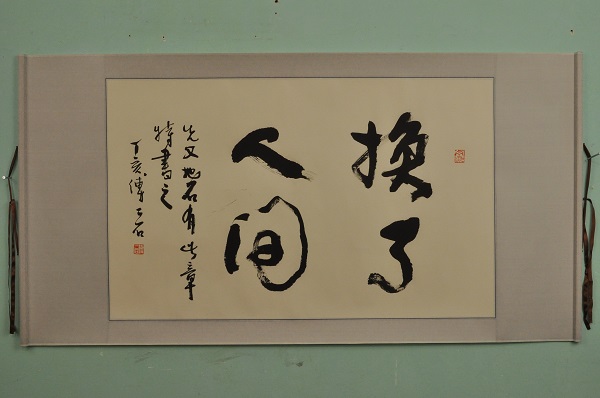 换了
人间
先父抱石有此章
特書之
丁亥傅二石